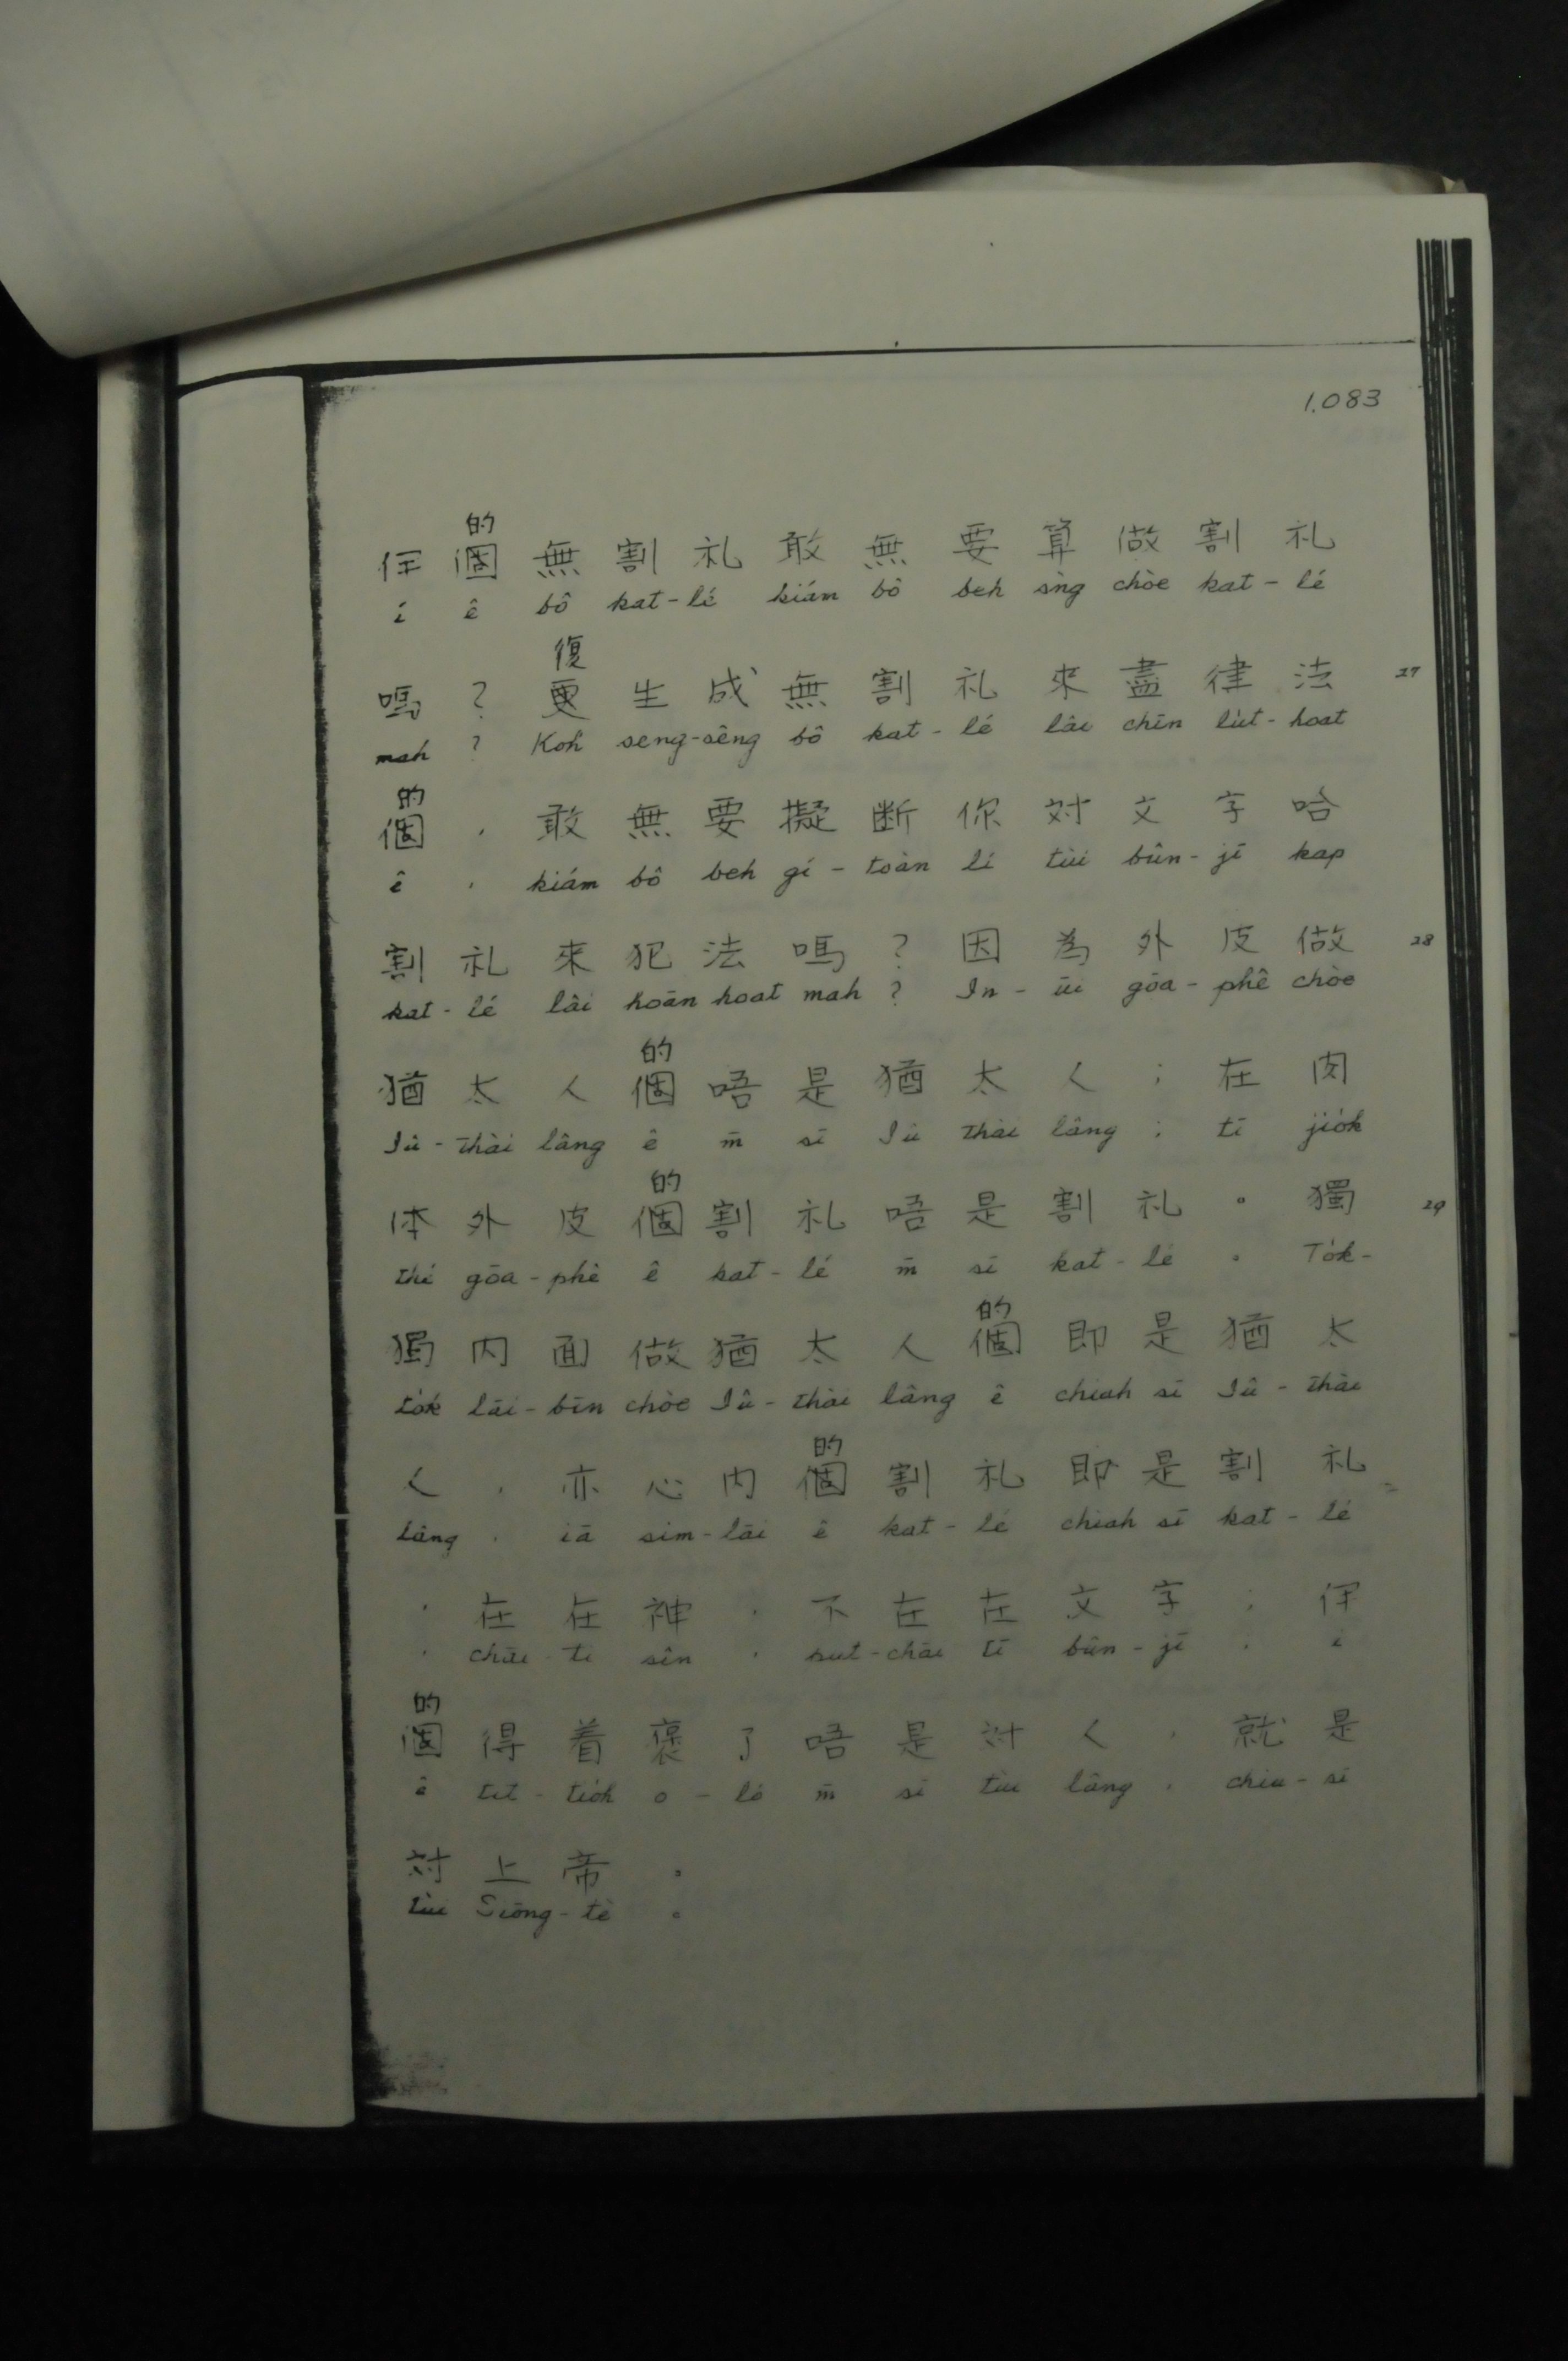 1.083
的
伊個無割礼敢無要算做割礼
i ê bô kat-lé kiám bô beh sǹg chòe kat-lé
復
嗎？更生成無割礼來盡律法 27
mah ? Koh seng-sêng bô kat-lé lâi chīn lu̍t-hoat
的
個，敢無要擬断你対文字哈
ê , kiám bô beh gí-toàn lí tùi bûn-jī kap
割礼來犯法嗎？因為外皮做 28
kat-lé lâi hoān hoat mah ? In-ūi gōa-phê chòe
的
猶太人個唔是猶太人；在肉
Iû-thài lâng ê m̄ sī Iû thài lâng ; tī jio̍k
的
体外皮個割礼唔是割礼。獨 29
thé gōa-phê ê kat-lé m̄ sī kat-lé 。 To̍k-
的
獨内面做猶太人個即是猶太
to̍k lāi-bīn chòe Iû-thài lâng ê chiah sī Iû-thài
的
人，亦心内個割礼即是割礼
lâng , iā sim-lāi ê kat-lé chiah sī kat-lé
，在在神，不在在文字；伊
, chāi-tī sîn , put-chāi tī bûn-jī ; i
的
個得着褒了唔是対人，就是
ê tit-tio̍h o-ló m̄ sī tùi lâng , chiū-sī
対上帝。
tùi Siōng-tè 。